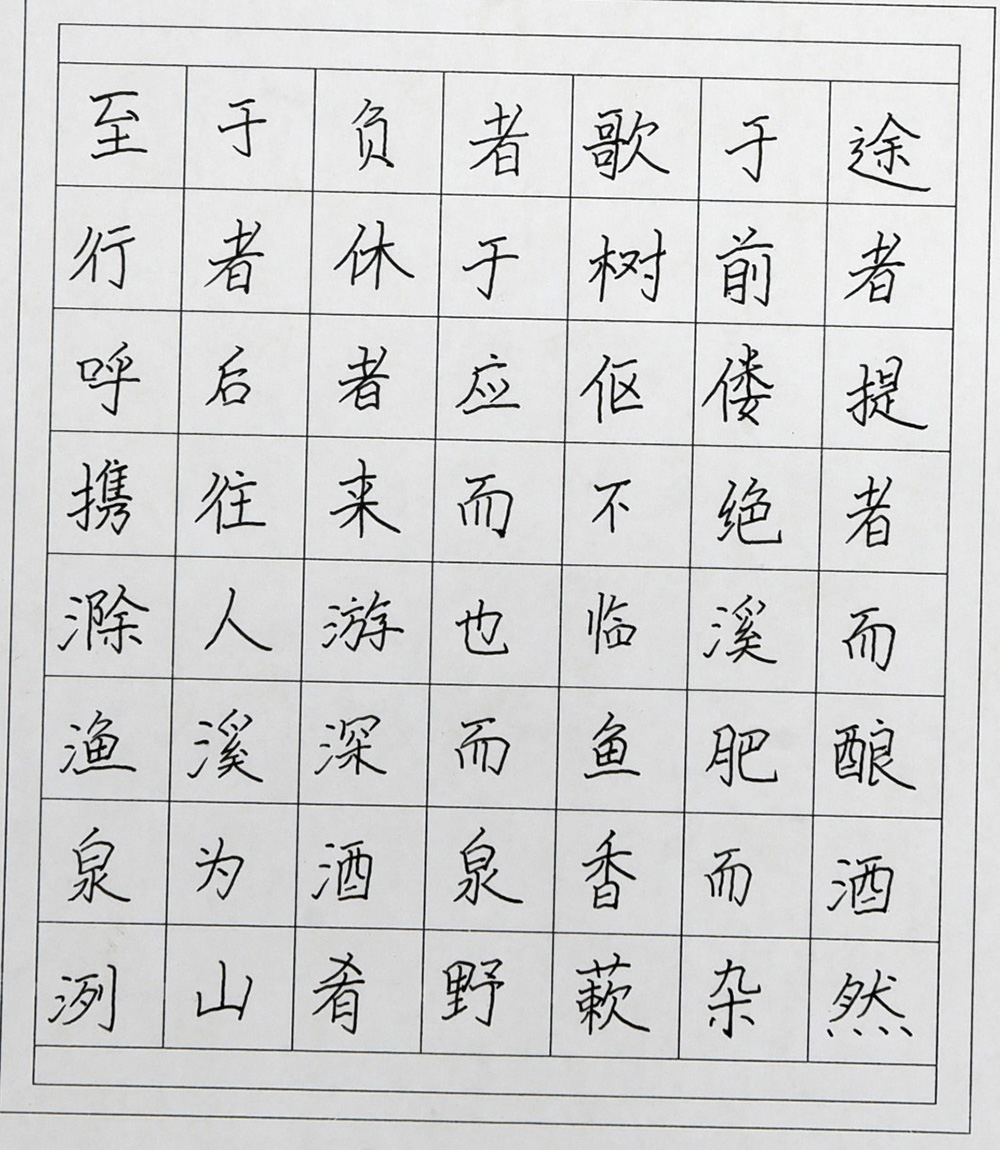 至于负者歌于途
行者休于树前者
呼后者应伛偻提
携往来而不绝者
滁人游也临溪而
渔溪深而鱼肥酿
泉为酒泉香而酒
洌山肴野蔌杂然